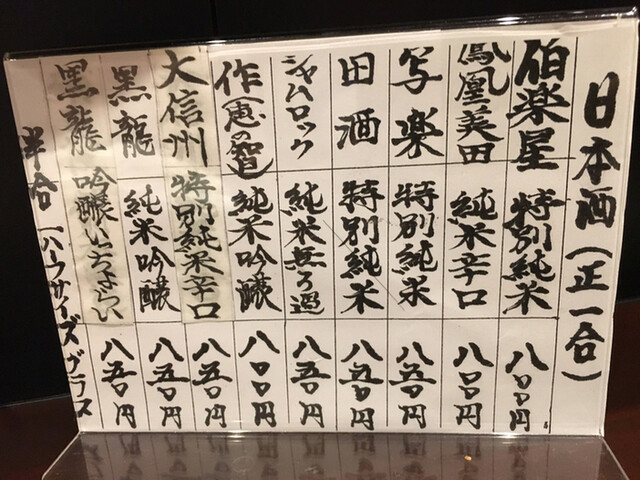 日本酒(正一合)
伯楽星 特別純米 八〇〇円
鳳凰美田 純米辛口 八〇〇円
写楽 特別純米 八五〇円
田酒 特別純米 八五〇円
シャムロック 純米無ろ過 八五〇円
作(恵の智) 純米吟醸 八〇〇円
大信州 特別純米辛口 八五〇円
黒龍 純米吟醸 八五〇円
黒龍 吟醸いっちょらい 八五〇円
半合(ハーフサイズグラス